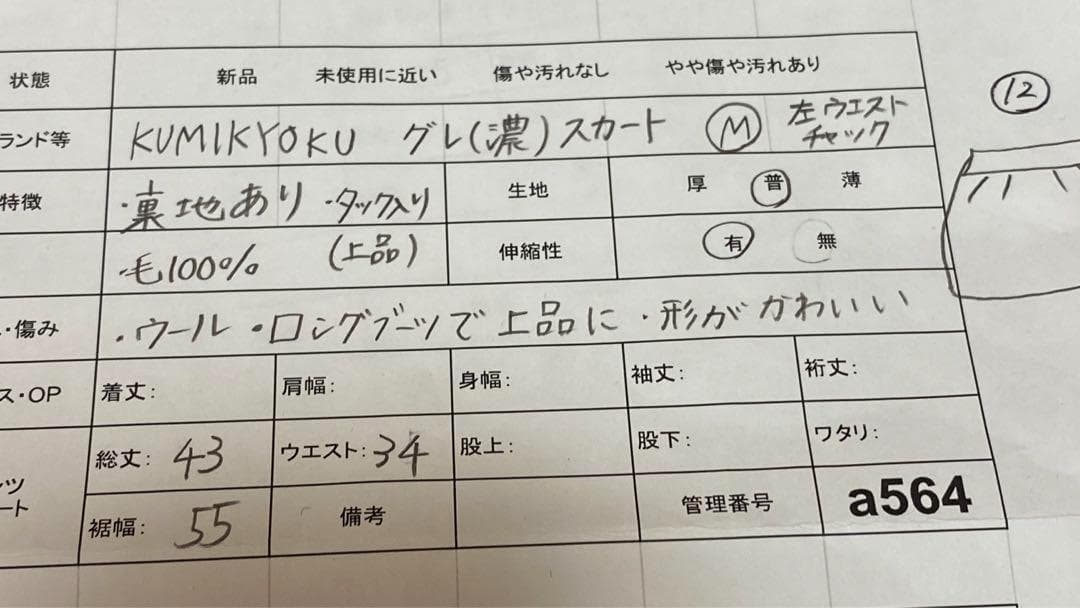 状態 新品 未使用に近い 傷や汚れなし やや傷や汚れあり
ランド等 KUMIKYOKU グレ(濃)スカート M 左ウエスト
チャック
12
特徴 ・裏地あり ・タック入り 生地 厚 普 薄
・毛100% (上品) 伸縮性 有 無
・傷み ・ウール ・ロングブーツで上品に ・形がかわいい
ス・OP 着丈: 肩幅: 身幅: 袖丈: 裄丈:
ンツ 総丈: 43 ウエスト: 34 股上: 股下: ワタリ:
ート 裾幅: 55 備考 管理番号 a564